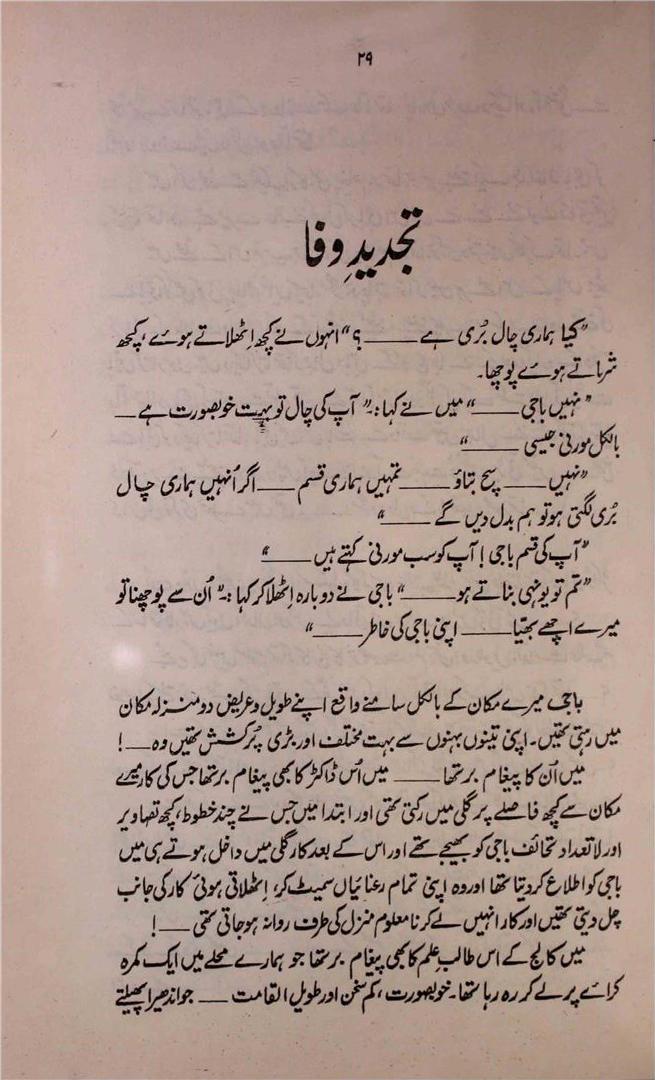 ۲۹
تجدیدِ وفا
”کیا ہماری چال بُری ہے ــــــ ؟“ انہوں نے کچھ اِٹھلاتے ہوئے، کچھ
شرماتے ہوئے پوچھا۔
”نہیں باجی ــــــ“ میں نے کہا:۔ ”آپ کی چال تو بہت خوبصورت ہے ــــ
بالکل مورنی جیسی ــــــ“
”نہیں ــــــ سچ بتاؤ ــــــ تمہیں ہماری قسم ــــــ اگر اُنہیں ہماری چال
بُری لگتی ہو تو ہم بدل دیں گے ــــــ“
”آپ کی قسم باجی! آپ کو سب مورنی کہتے ہیں ــــــ“
”تم تو یونہی بناتے ہو ــــــ“ باجی نے دوبارہ اِٹھلا کر کہا:۔ ”اُن سے پوچھنا تو
میرے اچھے بھیّا ــــــ اپنی باجی کی خاطر ــــــ“
باجی میرے مکان کے بالکل سامنے واقع اپنے طویل و عریض دو منزلہ مکان
میں رہتی تھیں۔ اپنی تینوں بہنوں سے بہت مختلف اور بڑی پُرکشش تھیں وہ ــــ!
میں اُن کا پیغام بر تھا ــــــ میں اُس ڈاکٹر کا بھی پیغام بر تھا جس کی کار میرے
مکان سے کچھ فاصلے پر گلی میں رکتی تھی اور ابتدا میں جس نے چند خطوط، کچھ تصاویر
اور لاتعداد تحائف باجی کو بھیجے تھے اور اس کے بعد کار گلی میں داخل ہوتے ہی میں
باجی کو اطلاع کر دیتا تھا اور وہ اپنی تمام رعنائیاں سمیٹ کر، اِٹھلاتی ہوئی کار کی جانب
چل دیتی تھیں اور کار انہیں لے کر نامعلوم منزل کی طرف روانہ ہو جاتی تھی ــــ!
میں کالج کے اس طالبِ علم کا بھی پیغام بر تھا جو ہمارے محلے میں ایک کمرہ
کرائے پر لے کر رہ رہا تھا۔ خوبصورت، کم سخن اور طویل القامت ــــ جو اندھیرا پھیلتے